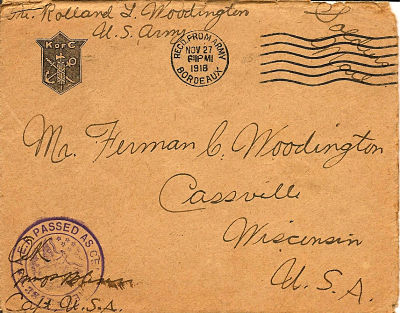 Rolland L. Woodington
U.S. Army
Soldiers
Mail
K of C
REC'D FROM ARMY
NOV 27
PM
1918
BORDEAUX
Mr. Ferman C. Woodington
Cassville
Wisconsin
U.S.A.
A.E.F. PASSED AS CE
Capt. U.S.A.